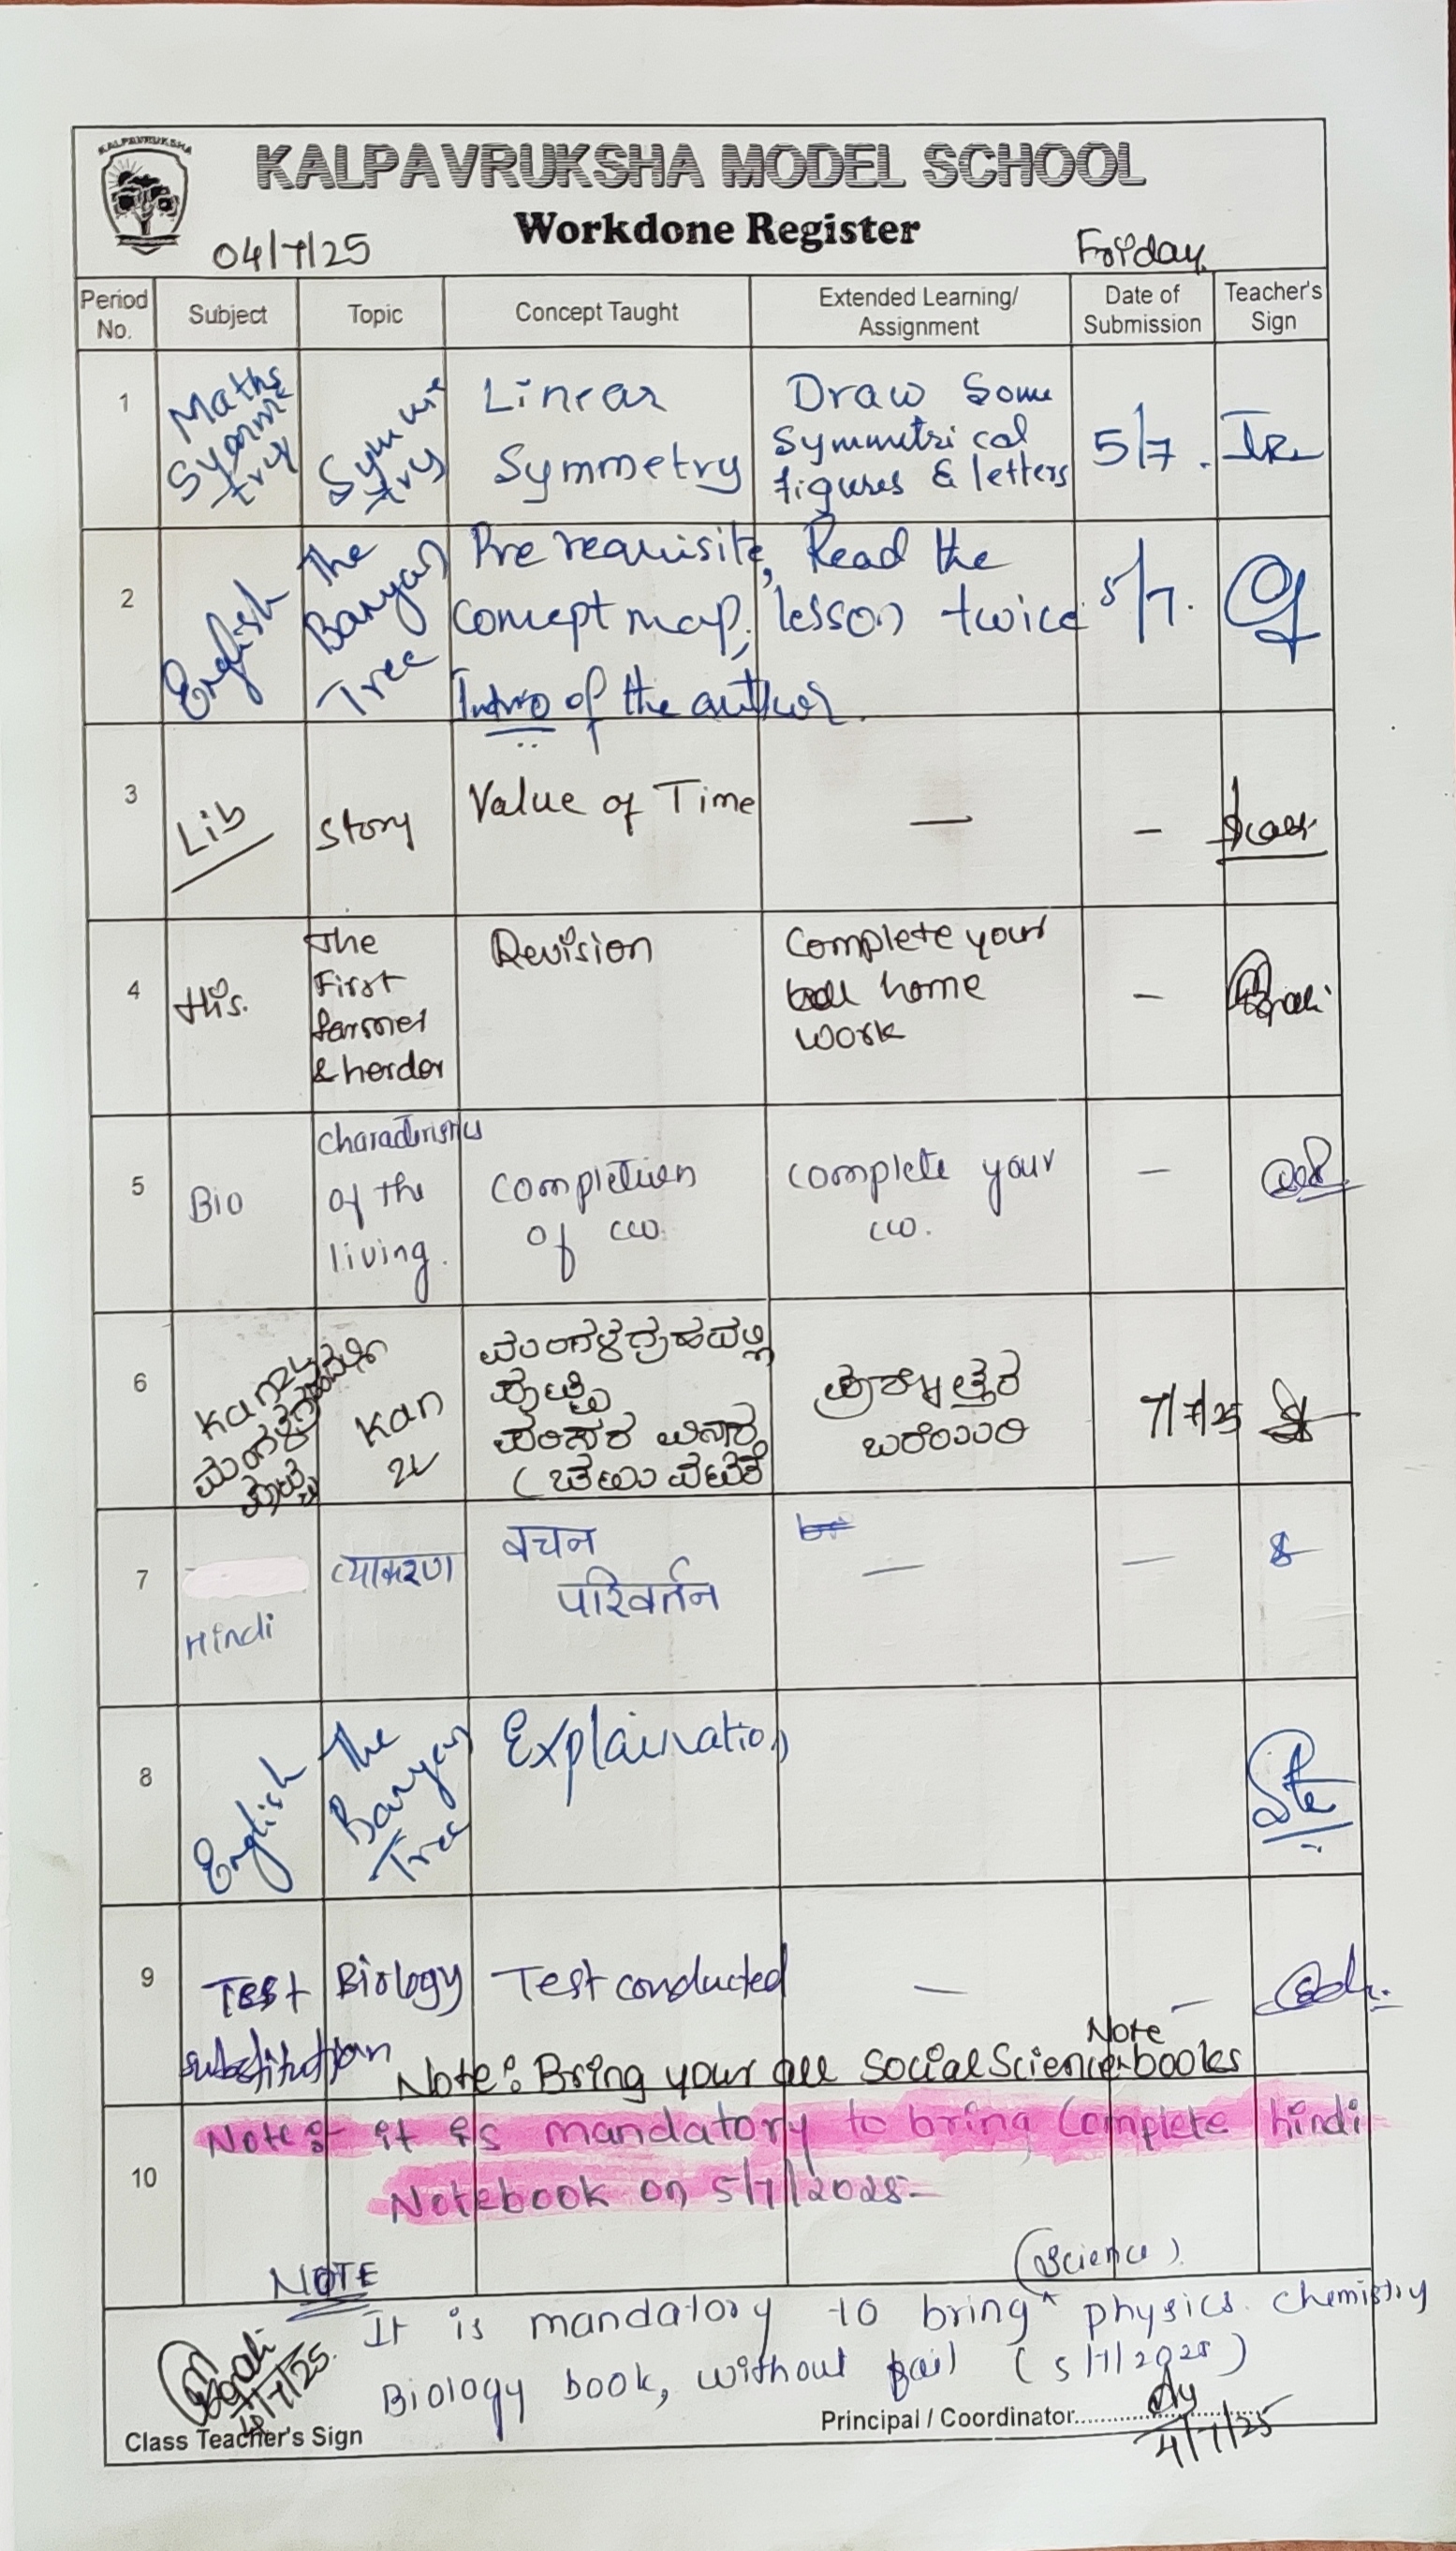 KALPAVRUKSHA
KALPAVRUKSHA MODEL SCHOOL
Workdone Register
04/7/25 Friday
Period No. Subject Topic Concept Taught Extended Learning/ Assignment Date of Submission Teacher's Sign
1 Maths Symmetry Symmetry Linear Symmetry Draw Some Symmetrical figures & letters 5/7.
2 English The Banyan Tree Pre requisite, Concept map, Intro of the author. Read the lesson twice 5/7.
3 Lib Story Value of Time — –
4 His. The First farmer & herder Revision Complete your all home work –
5 Bio Characteristics of the living. Completion of cw. complete your cw. —
6 Kan2L Kan 2L ಮಂಗಳಗ್ರಹದಲ್ಲಿ ಪುಟ್ಟಿ ಪರಿಸರ ಪ್ರಶ್ನೋತ್ತರ ಬರೆಯಿರಿ 7/7/25
7 Hindi व्याकरण वचन परिवर्तन — —
8 English The Banyan Tree Explaination
9 Test substitution Biology Test conducted — –
Note: Bring your all Social Science Note books
10 Note:- it is mandatory to bring Complete hindi
Notebook on 5/7/2025-
NOTE
It is mandatory to bring (Science) physics chemistry
Biology book, without fail (5/7/2025)
Class Teacher's Sign Principal / Coordinator 4/7/25